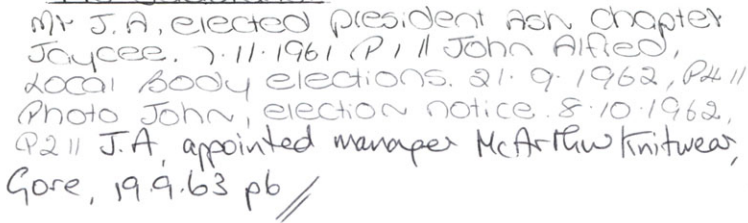 Mr J.A, elected president Ash Chapter
Jaycee. 7.11.1961 P1 // John Alfred,
Local Body elections. 21.9.1962, P4 //
Photo John, election notice. 8.10.1962,
P2 // J.A, appointed manager McArthur Knitwear,
Gore, 19.9.63 p6 //